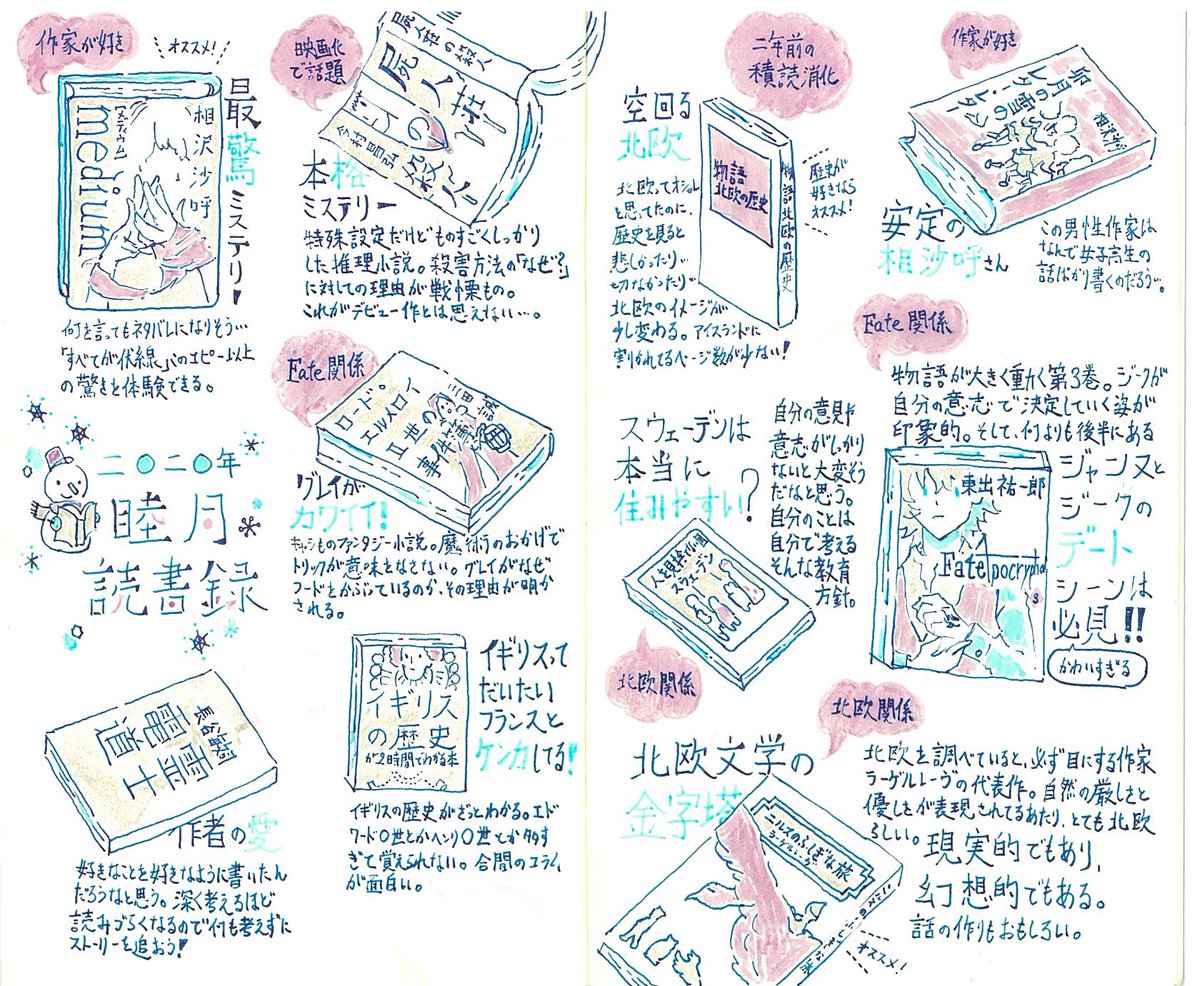 作家が好き
オススメ!
相沢沙呼
medium
[メディウム]
最驚ミステリー!
何を言ってもネタバレになりそう…
「すべてが伏線」のコピー以上
の驚きを体験できる。
映画化
で話題
屍人荘の殺人
今村昌弘
屍人荘の殺人
本格
ミステリー
特殊設定だけどものすごくしっかり
した推理小説。殺害方法の「なぜ?」
に対しての理由が戦慄もの。
これがデビュー作とは思えない…。
Fate関係
三田誠
ロード・
エルメロイ
II世の
事件簿
グレイが
カワイイ!
キャラものファンタジー小説。魔術のおかげで
トリックが意味をなさない。グレイがなぜ
フードをかぶっているのか、その理由が明か
される。
二〇二〇年
睦月
読書録
長谷敏司
電霊道士
作者の愛
好きなことを好きなように書いたん
だろうなと思う。深く考えるほど
読みづらくなるので何も考えずに
ストーリーを追おう!
イギリス
の歴史
が2時間でわかる本
イギリスって
だいたい
フランスと
ケンカしてる!
イギリスの歴史がざっとわかる。エド
ワード〇世とかヘンリ〇世とか多す
ぎて覚えられない。合間のコラム
が面白い。
二年前の
積読消化
空回る
北欧
物語
北欧の歴史
物語 北欧の歴史
歴史が
好きなら
オススメ!
北欧ってオシャレ
と思ってたのに、
歴史を見ると
悲しかったり…
切なかったり…
北欧のイメージが
少し変わる。アイスランドに
割かれてるページ数が少ない!
作家が好き
卯月の雪の
レター・レター
相沢沙呼
安定の
相沙呼さん
この男性作家は
なんで女子高生の
話ばかり書くのだろう…。
Fate関係
物語が大きく動く第3巻。ジークが
自分の意志で決定していく姿が
印象的。そして、何よりも後半にある
ジャンヌと
ジークの
デート
シーンは
必見!!
かわいすぎる
東出祐一郎
Fate
Apocrypha
3
スウェーデンは
本当に
住みやすい?
自分の意見や
意志がしっかり
ないと大変そう
だなと思う。
自分のことは
自分で考える
そんな教育
方針。
人を見捨てない国
スウェーデン
北欧関係
北欧関係
北欧文学の
金字塔
ニルスのふしぎな旅
ラーゲルレーヴ
オススメ!
北欧を調べていると、必ず目にする作家
ラーゲルレーヴの代表作。自然の厳しさと
優しさが表現されてるあたり、とても北欧
らしい。
現実的でもあり、
幻想的でもある。
話の作りもおもしろい。